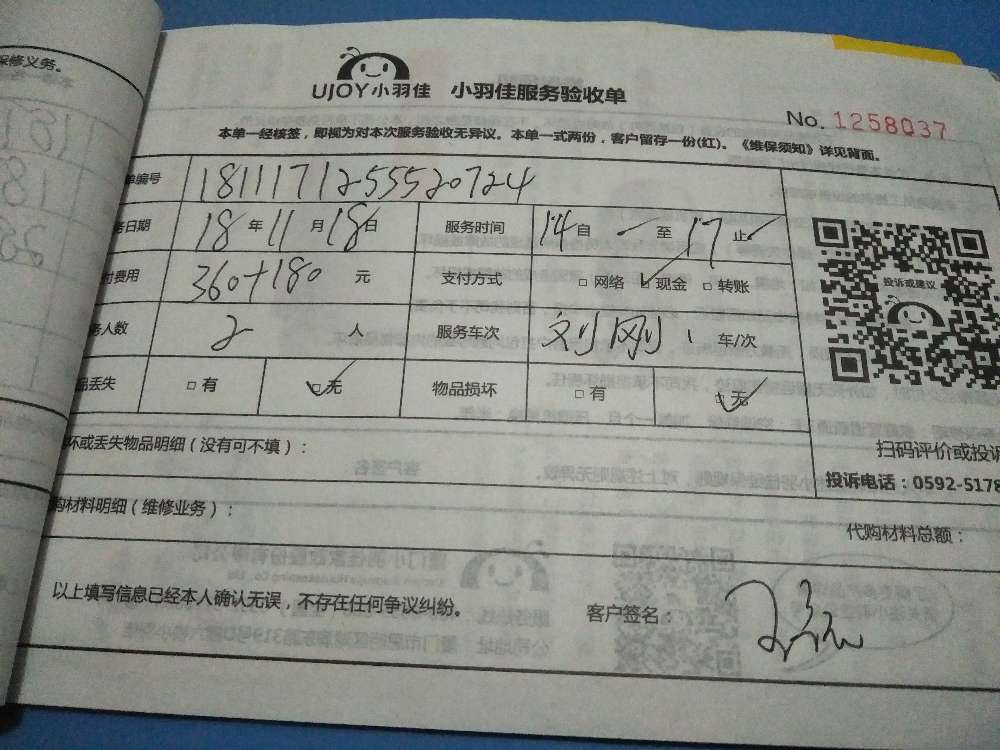 保修义务。
UJOY小羽佳 小羽佳服务验收单
No. 1258037
本单一经核签，即视为对本次服务验收无异议。本单一式两份，客户留存一份(红)。《维保须知》详见背面。
单编号 1811171255520724
务日期 18 年 11 月 18 日 服务时间 14 自 至 17 止
付费用 360+180 元 支付方式 □ 网络 □ 现金 □ 转账
务人数 2 人 服务车次 刘刚 1 车/次
品丢失 □ 有 □ 无 物品损坏 □ 有 □ 无
投诉或建议
扫码评价或投诉
投诉电话：0592-5178
坏或丢失物品明细（没有可不填）：
购材料明细（维修业务）：
代购材料总额：
以上填写信息已经本人确认无误，不存在任何争议纠纷。
客户签名：